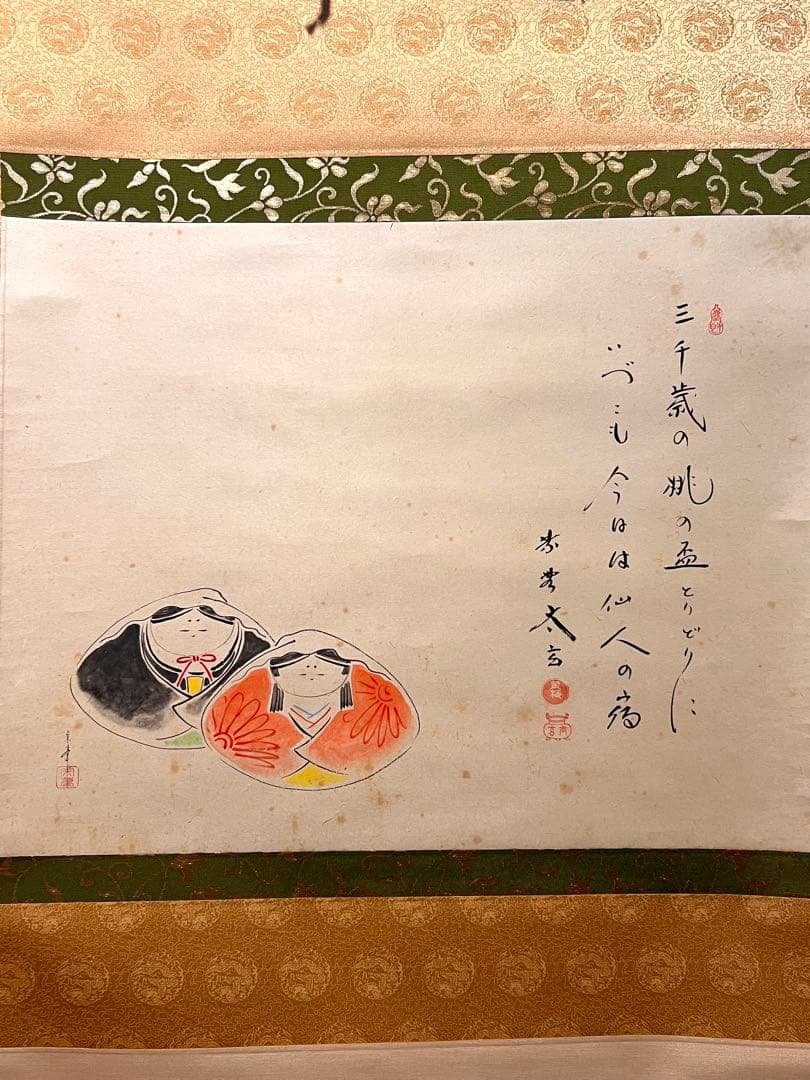 三千歳の桃の盃とりどりに
いづこも今日は仙人の宿
紫埜太玄